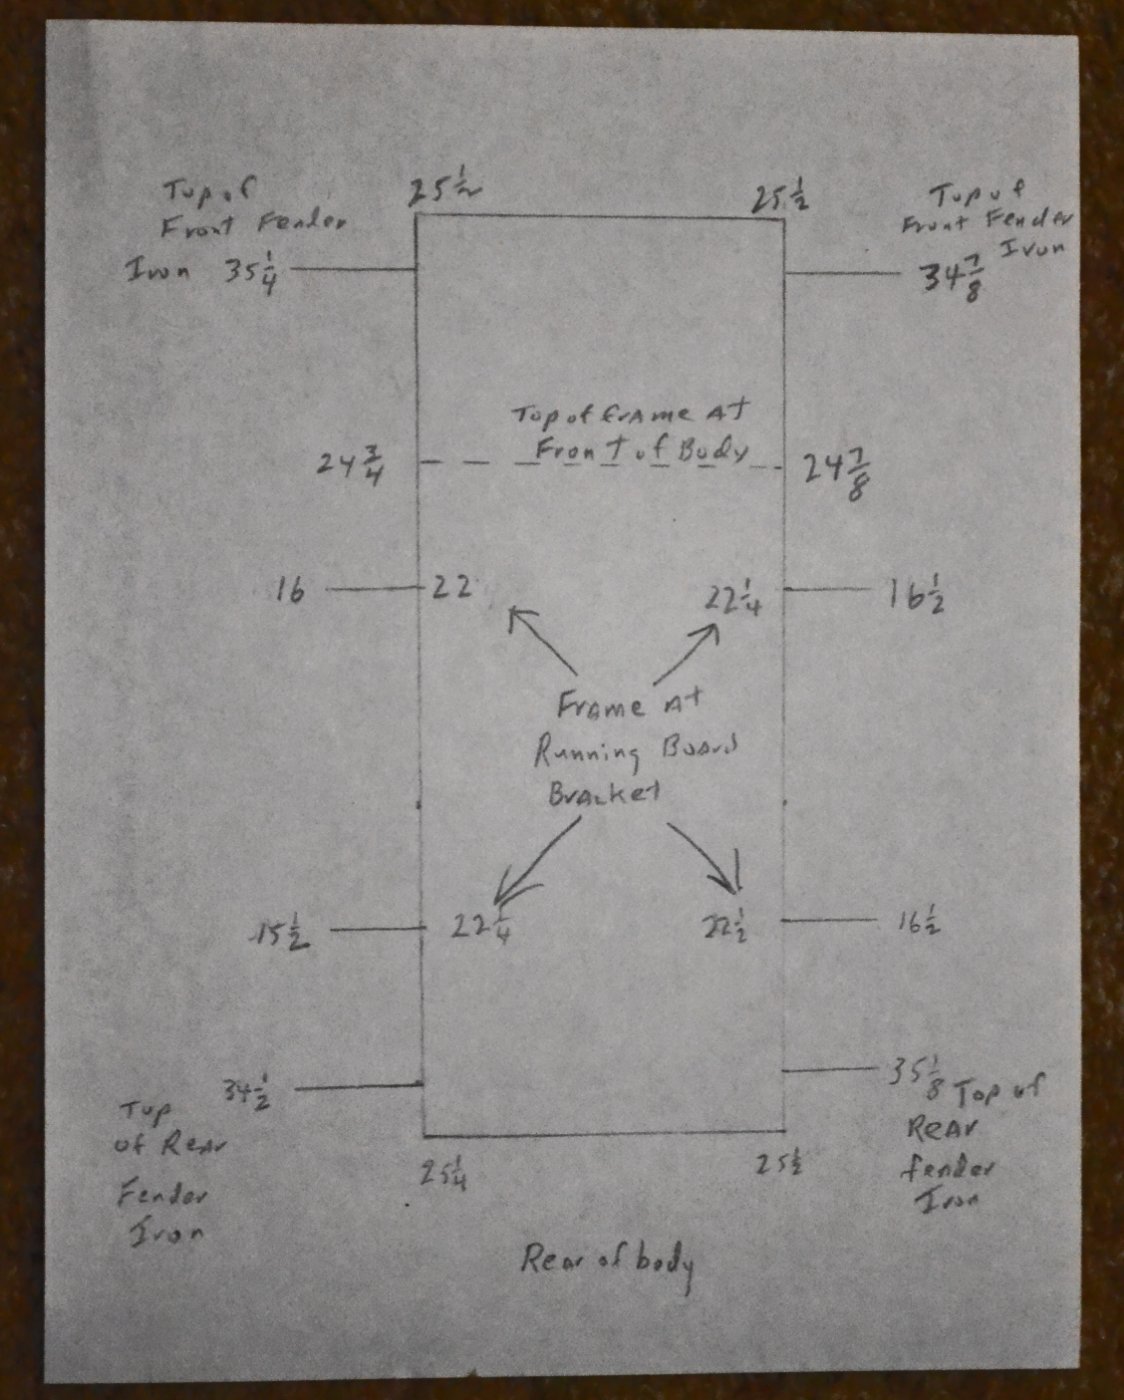 25 1/2
25 1/2
Top of
Front Fender
Iron 35 1/4
Top of
Front Fender
Iron
34 7/8
Top of frAme At
Front of Body
24 3/4
24 7/8
16
22
22 1/4
16 1/2
FrAme At
Running Board
BrAcket
15 1/2
22 1/4
22 1/2
16 1/2
34 1/2
Top
of ReAr
Fender
Iron
35 1/8 Top of
ReAr
fender
Iron
25 1/4
25 1/2
Rear of body